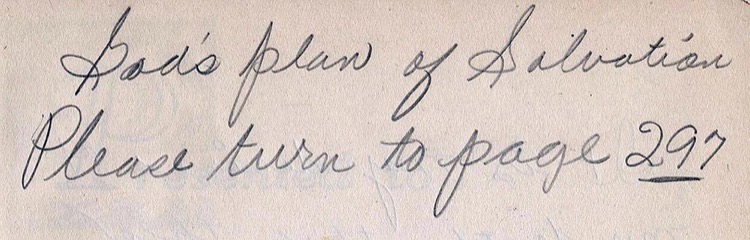 God's plan of Salvation
Please turn to page 297